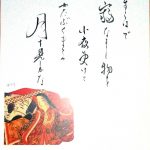 やすらはで
寝なまし物を
小夜更けて
かたぶくまでの
月を見しかな